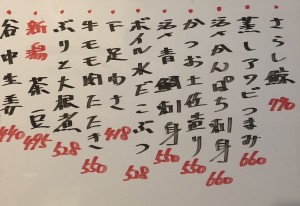 さらし鯨 770
蒸しアワビつまみ 660
活〆かんぱち刺身 660
かつお土佐造り 550
活〆青鯛刺身 550
ボイル水だこぶつ 528
下足わさ 418
牛モモ肉たたき 550
ぶりと大根煮 528
新潟 茶豆 495
谷中生姜 440